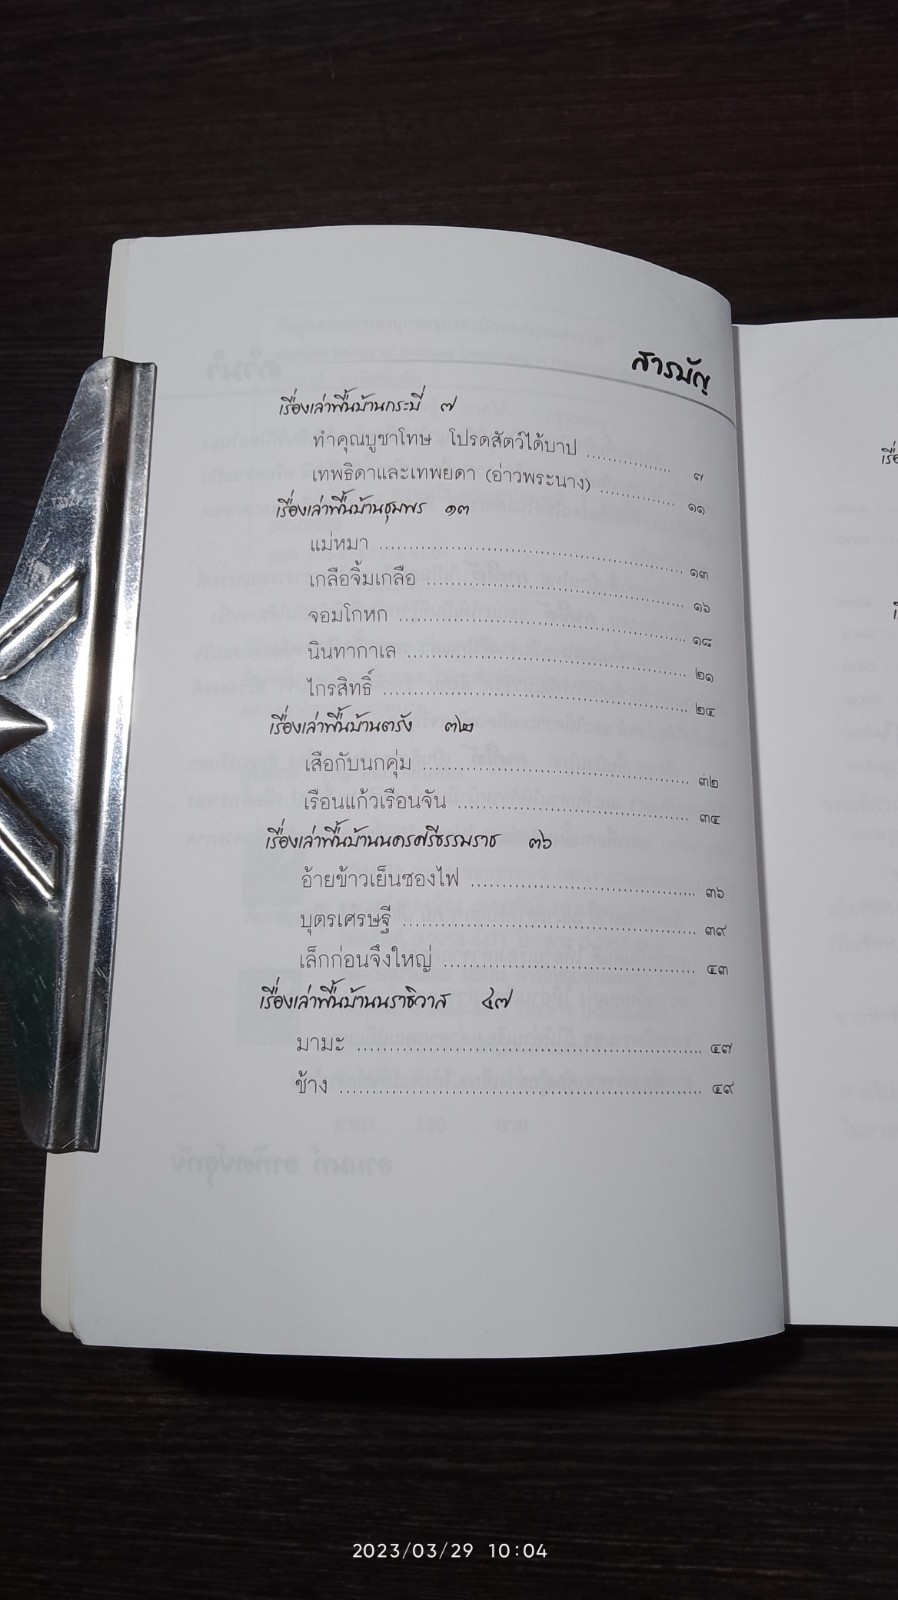 สารบัญ
เรื่องเล่าพื้นบ้านกระบี่ ๗
ทำคุณบูชาโทษ โปรดสัตว์ได้บาป ................ ๗
เทพธิดาและเทพยดา (อ่าวพระนาง) ................ ๑๑
เรื่องเล่าพื้นบ้านชุมพร ๑๓
แม่หมา ................ ๑๓
เกลือจิ้มเกลือ ................ ๑๖
จอมโกหก ................ ๑๘
นินทากาเล ................ ๒๑
ไกรสิทธิ์ ................ ๒๔
เรื่องเล่าพื้นบ้านตรัง ๓๒
เสือกับนกคุ่ม ................ ๓๒
เรือนแก้วเรือนจัน ................ ๓๔
เรื่องเล่าพื้นบ้านนครศรีธรรมราช ๓๖
อ้ายข้าวเย็นซองไฟ ................ ๓๖
บุตรเศรษฐี ................ ๓๙
เล็กก่อนจึงใหญ่ ................ ๔๓
เรื่องเล่าพื้นบ้านนราธิวาส ๔๗
มามะ ................ ๔๗
ช้าง ................ ๔๙
2023/03/29 10:04